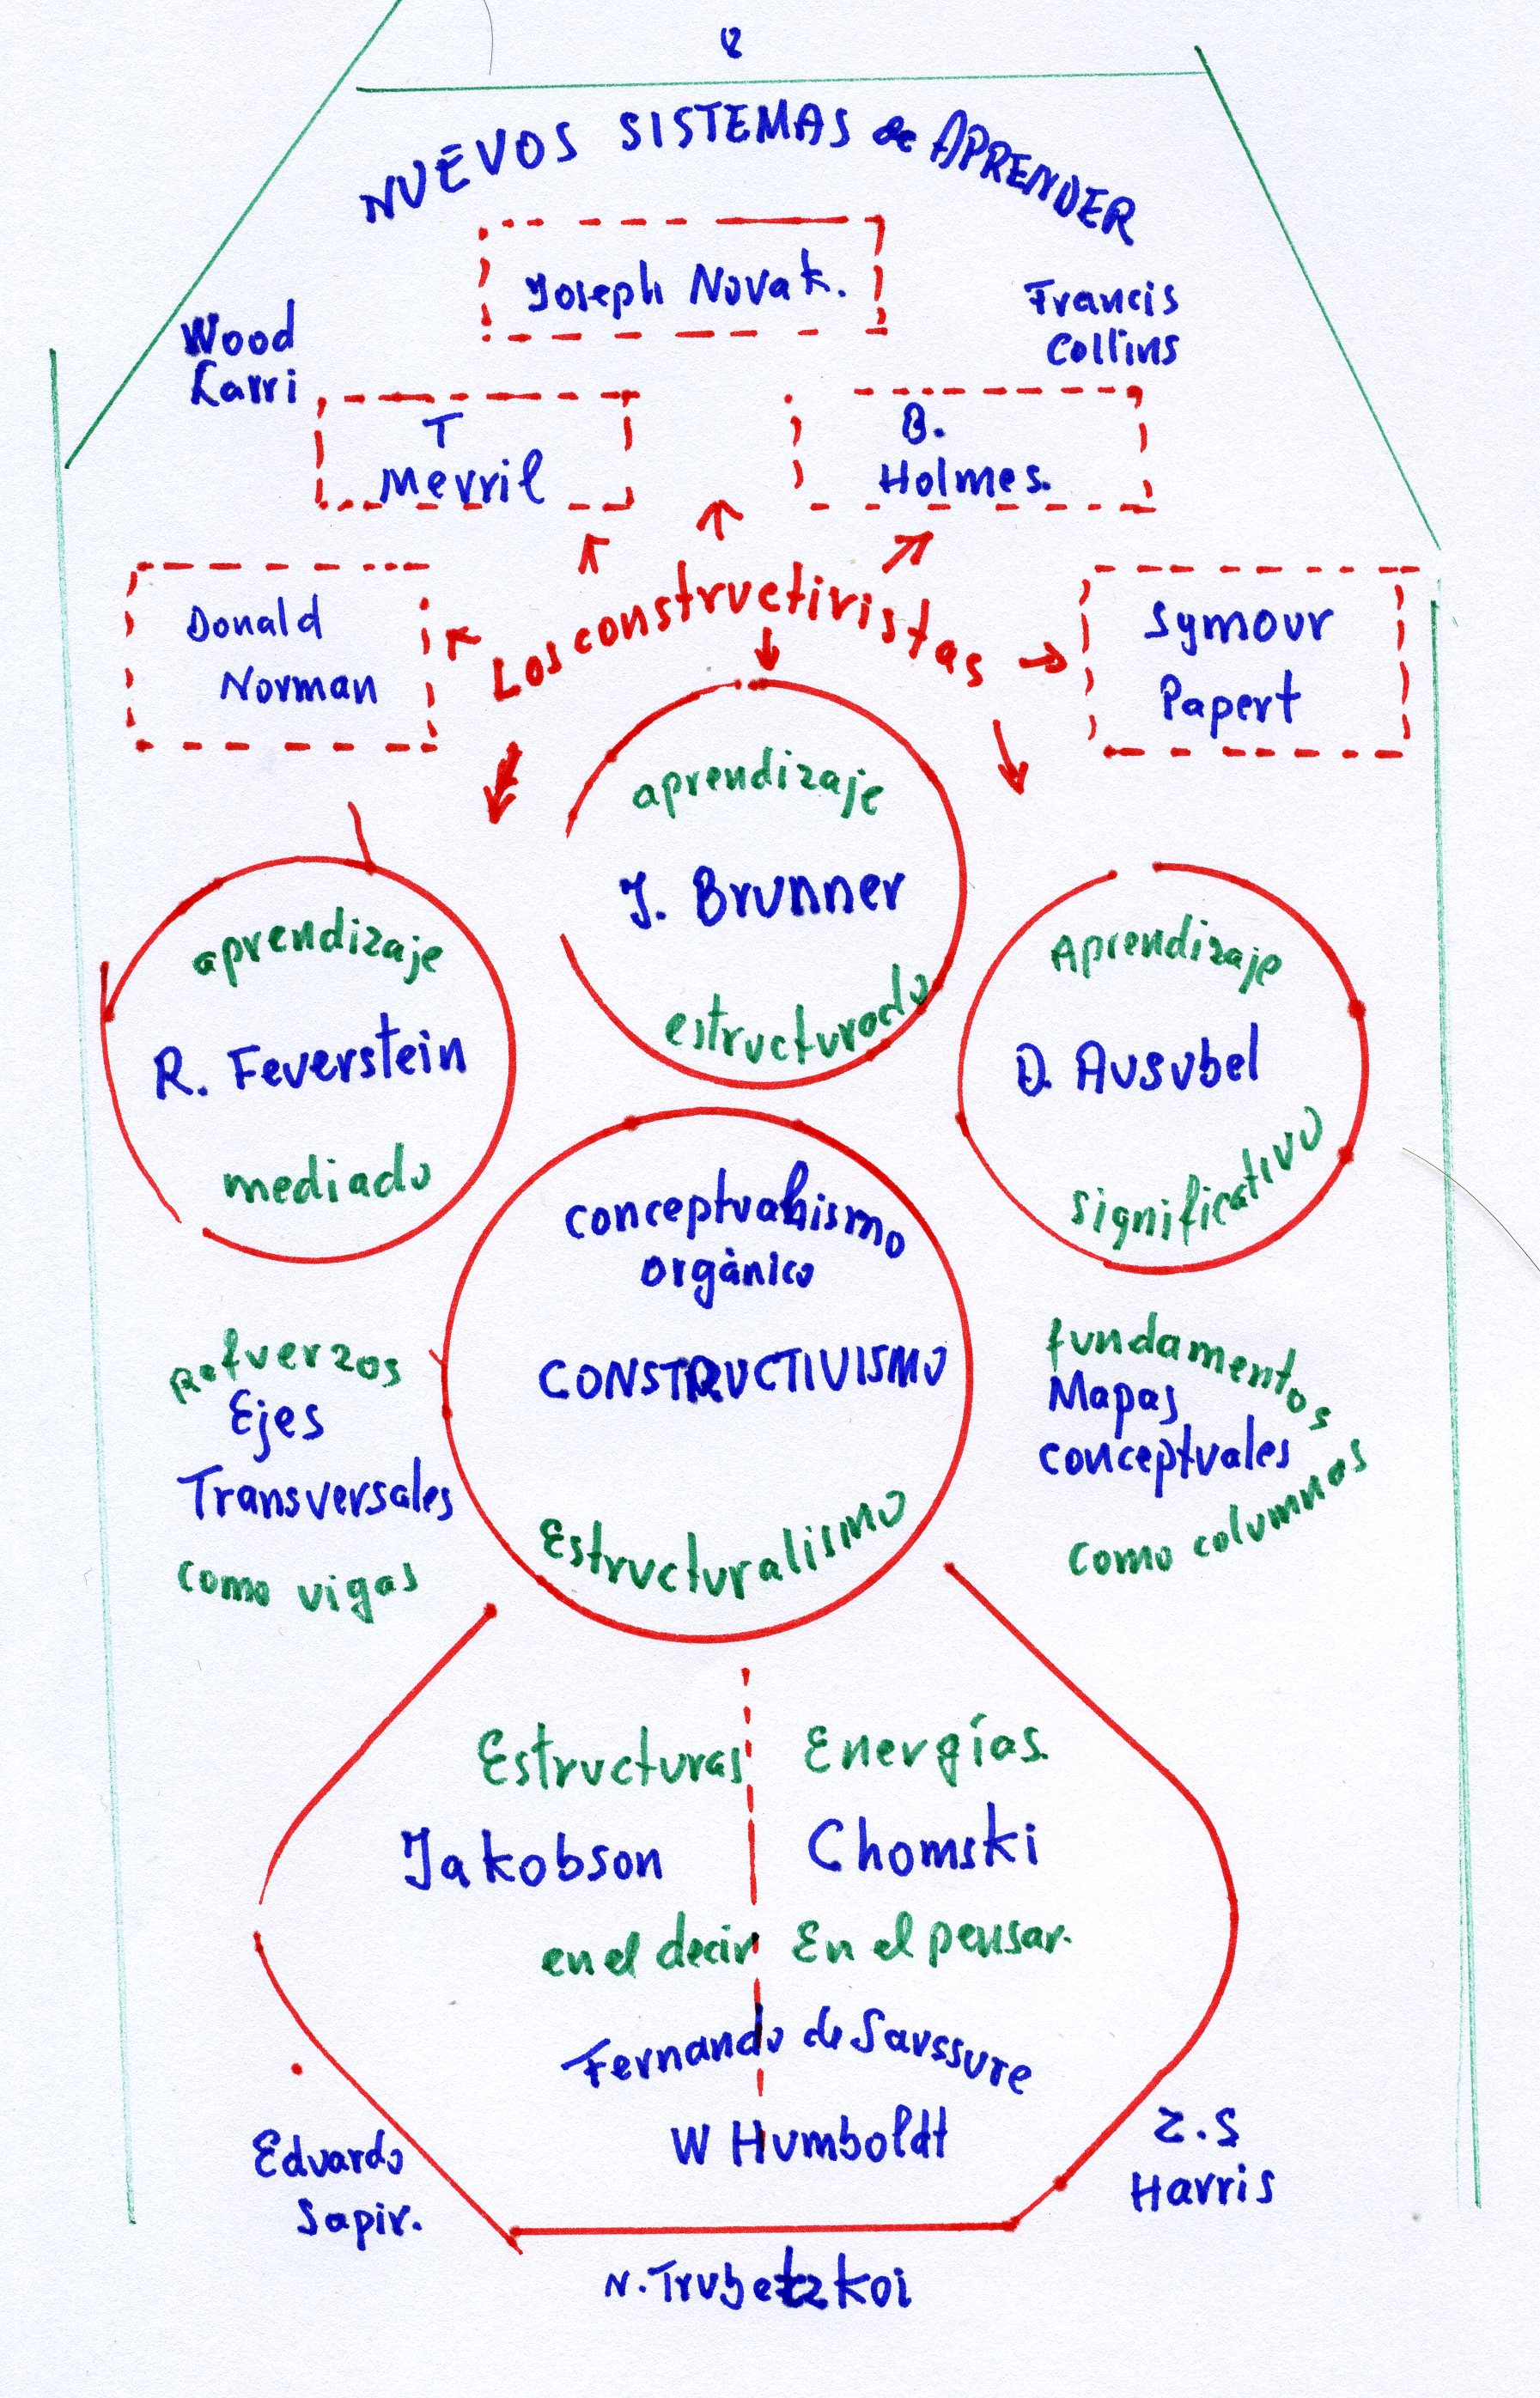 8
NUEVOS SISTEMAS de APRENDER
Joseph Novak.
Francis
Collins
Wood
Larri
T
Merril
B.
Holmes.
Los constructivistas
Donald
Norman
Symour
Papert
aprendizaje
J. Brunner
estructurado
aprendizaje
R. Feuerstein
mediado
Aprendizaje
D. Ausubel
significativo
conceptualismo
orgánico
CONSTRUCTIVISMO
Estructuralismo
Refuerzos
Ejes
Transversales
como vigas
fundamentos
Mapas
conceptuales
como columnas
Estructuras Energías.
Jakobson Chomski
en el decir En el pensar.
Fernando de Saussure
W Humboldt
Eduardo
Sapir.
Z.S
Harris
N. Trubetzkoi